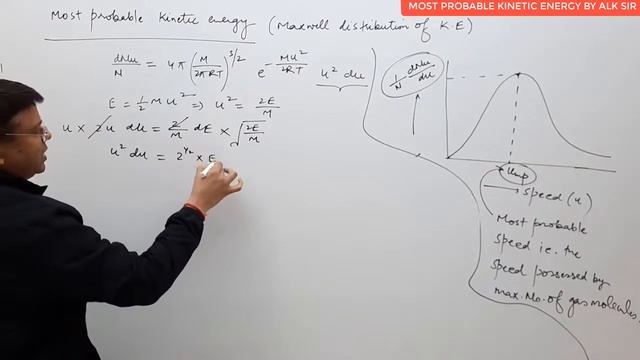 MOST PROBABLE KINETIC ENERGY BY ALK SIR
Most probable Kinetic energy (Maxwell distribution of K.E)
dNu/N = 4π (M/2πRT)^3/2 e^-Mu²/2RT u² du
E = 1/2 M u² ⇒ u² = 2E/M
u × 2u du = 2/M dE × √2E/M
u² du = 2^1/2 × E
1/N dNu/du
Ump
Speed (u)
Most probable
Speed i.e. the
Speed possessed by
max. No. of gas molecules.